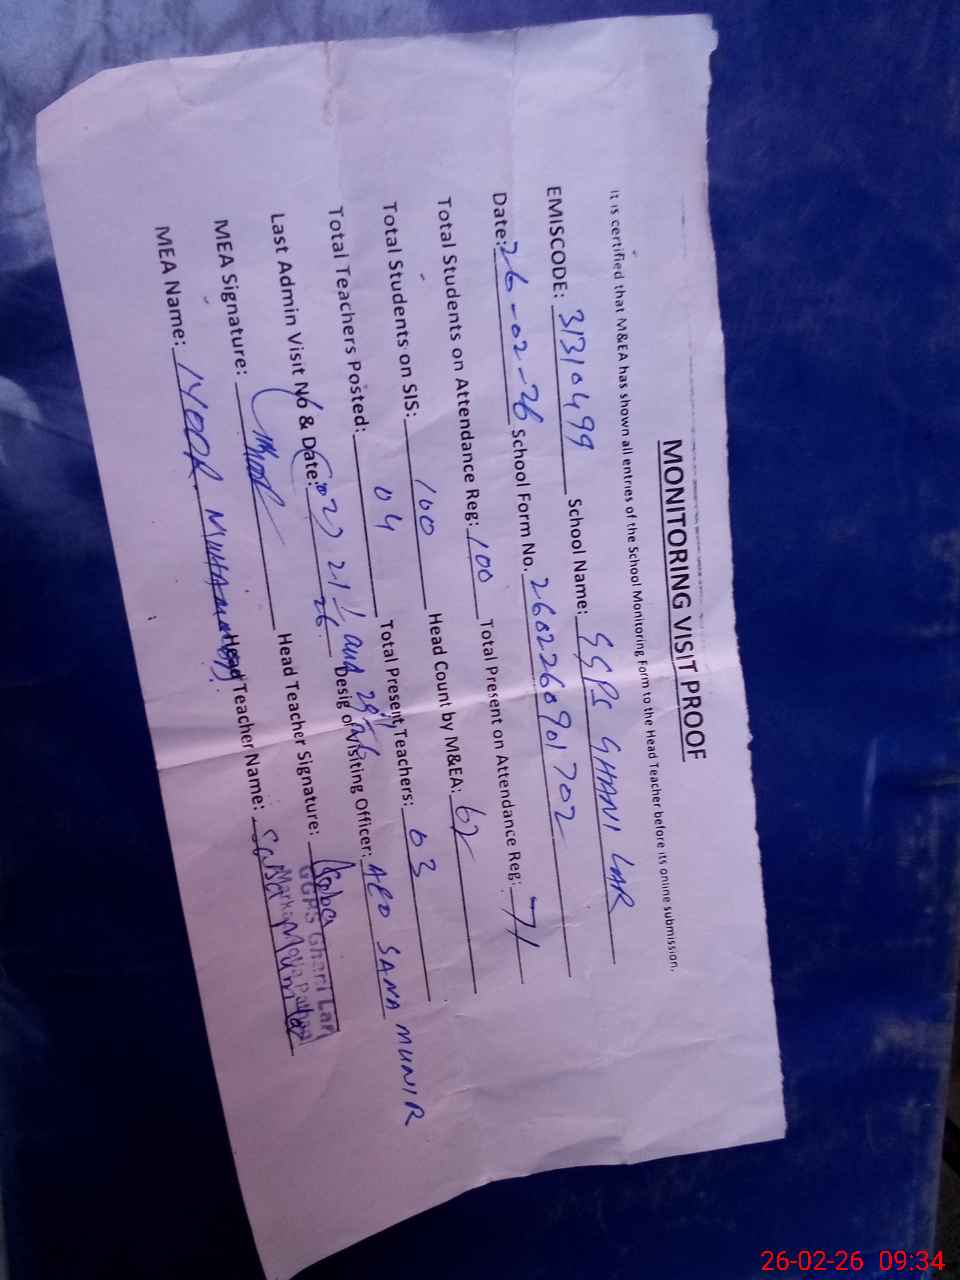 MONITORING VISIT PROOF
It is certified that M&EA has shown all entries of the School Monitoring Form to the Head Teacher before its online submission.
EMISCODE: 31310499 School Name: GGPS GHANI LAR
Date: 26-02-26 School Form No. 2602260901702
Total Students on Attendance Reg: 100 Total Present on Attendance Reg: 71
Total Students on SIS: 100 Head Count by M&EA: 62
Total Teachers Posted: 04 Total Present Teachers: 03
Last Admin Visit No & Date: (02) 21/1/26 and 29/1/26 Desig of Visiting Officer: AEO SANA MUNIR
MEA Signature: Head Teacher Signature:
GGPS Ghani Lar
MEA Name: NOOR MUHAMMAD. Head Teacher Name:
Markaz
26-02-26 09:34